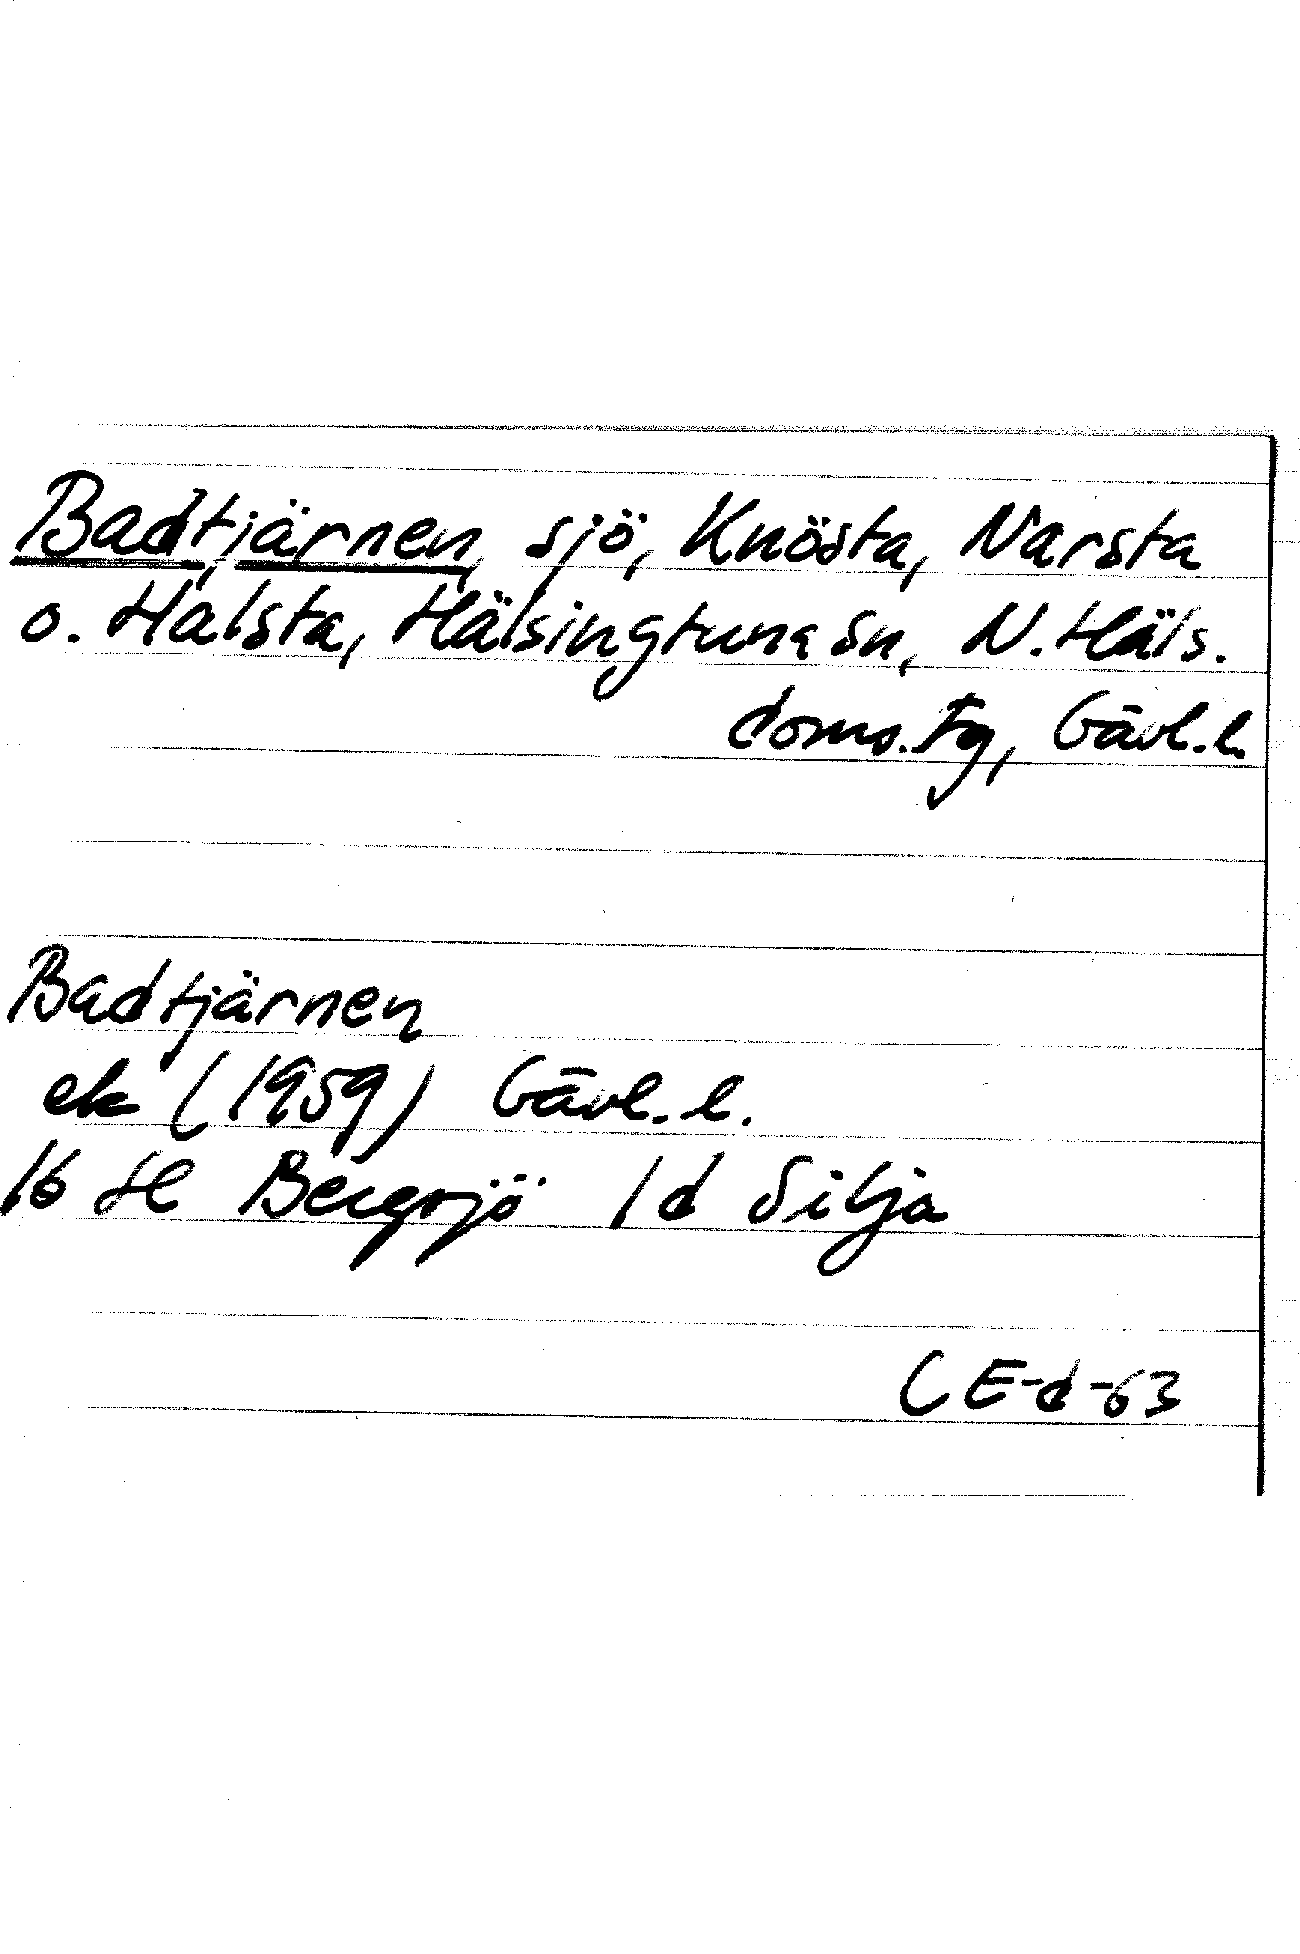 Badtjärnen, sjö, Knösta, Narsta
o. Halsta, Hälsingtuna sn, N. Häls.
doms. Fg, Gävl. l.
Badtjärnen
ek (1959) Gävl. l.
16 H Bergsjö 1d Silja
CE-d-63